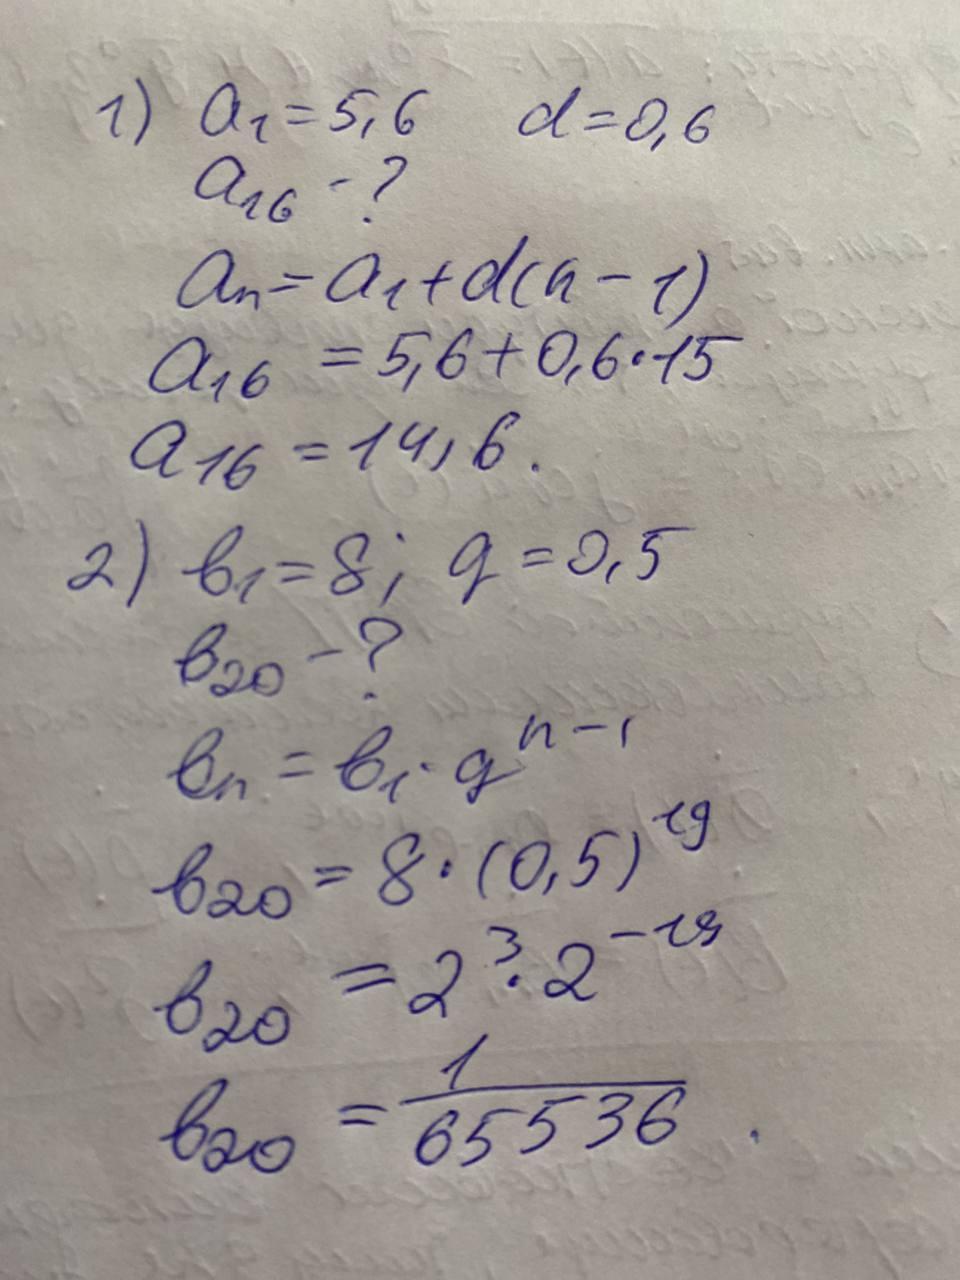 1) a₁ = 5,6   d = 0,6
a₁₆ - ?
aₙ = a₁ + d(n - 1)
a₁₆ = 5,6 + 0,6 · 15
a₁₆ = 14,6.
2) b₁ = 8; q = 0,5
b₂₀ - ?
bₙ = b₁ · qⁿ⁻¹
b₂₀ = 8 · (0,5)¹⁹
b₂₀ = 2³ · 2⁻¹⁹
b₂₀ = 1/65536.